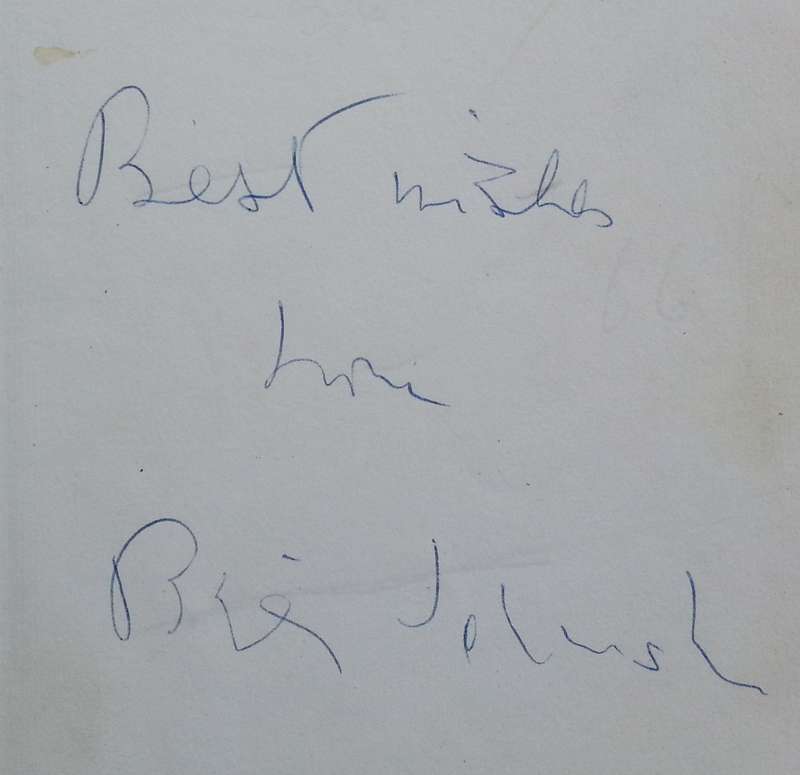 Best wishes
from
Brian Johnston